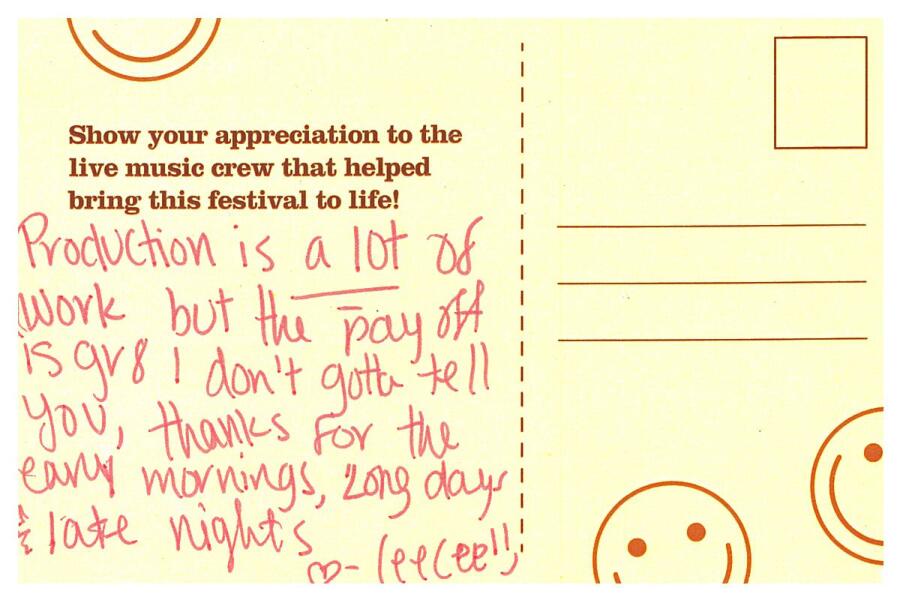 Show your appreciation to the
live music crew that helped
bring this festival to life!
Production is a lot of
work but the pay off
is gr8 I don't gotta tell
you, thanks for the
early mornings, long days
& late nights
♡-